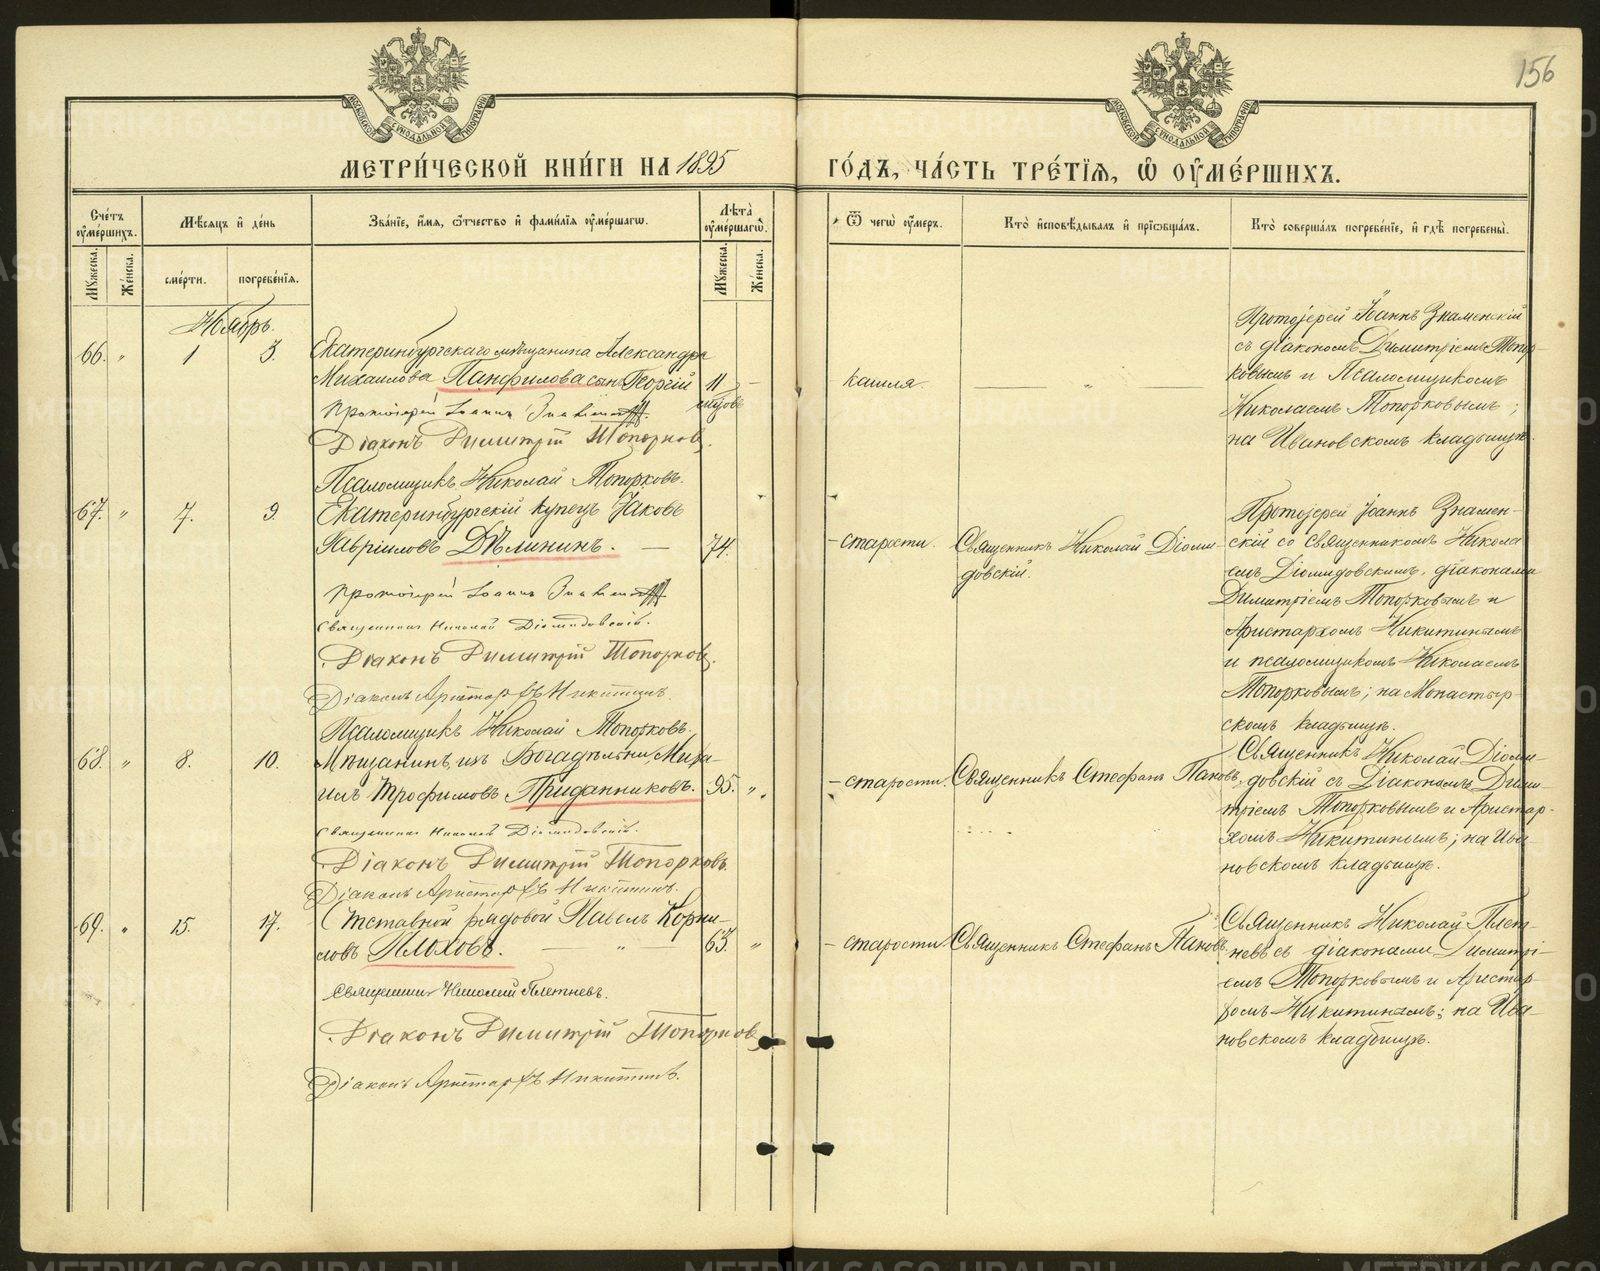 156
МОСКОВСКОЙ СѴНОДАЛЬНОЙ ТИПОГРАФІИ
МОСКОВСКОЙ СѴНОДАЛЬНОЙ ТИПОГРАФІИ
МЕТРИ́ЧЕСКОЙ КНИ́ГИ НА 1895 ГО́ДЪ, ЧА́СТЬ ТРЕ́ТІЯ, Ѡ ОУМЕ́РШИХЪ.
Сче́тъ оуме́ршихъ.
Мѣ́сяцъ и де́нь
Зва́ніе, и́мя, ѻ́тчество и фами́лія оуме́ршагѡ.
Лѣ́та оуме́ршагѡ.
Ѿ чегѡ̀ оу́меръ.
Кто̀ исповѣ́дывалъ и пріѡбща́лъ.
Кто̀ соверша́лъ погребе́ніе, и гдѣ̀ погребены̀.
Мꙋ́жеска.
Же́нска.
сме́рти.
погребе́нія.
Мꙋ́жеска.
Же́нска.
Ноябрь.
66. " 1 3.
Екатеринбургскаго мѣщанина Александра
Михаилова Панфилова сынъ Георгій 11
мѣсяцовъ
Протоіерей Іоаннъ Знаменскій
Діаконъ Димитрій Топорковъ.
Псаломщикъ Николай Топорковъ.
кашля. — "
Протоіерей Іоаннъ Знаменскій
съ діакономъ Димитріемъ Топор-
ковымъ и Псаломщикомъ
Николаемъ Топорковымъ;
на Ивановскомъ кладбищѣ.
67. " 7. 9.
Екатеринбургскій купецъ Іаковъ
Гавріиловъ Дѣлининъ. — 74.
Протоіерей Іоаннъ Знаменскій
Священникъ Николай Діомидовскій.
Діаконъ Димитрій Топорковъ.
Діаконъ Аристархъ Никитинъ
Псаломщикъ Николай Топорковъ.
старости.
Священникъ Николай Діоми-
довскій.
Протоіерей Іоаннъ Знамен-
скій со священникомъ Никола
емъ Діомидовскимъ, діаконами
Димитріемъ Топорковымъ и
Аристархомъ Никитинымъ
и псаломщикомъ Николаемъ
Топорковымъ; на Монастыр-
скомъ кладбищѣ.
68. " 8. 10.
Мѣщанинъ, изъ Богадѣльни, Миха-
илъ Трофимовъ Приданниковъ. 95. "
Священникъ Николай Діомидовскій.
Діаконъ Димитрій Топорковъ.
Діаконъ Аристархъ Никитинъ.
старости.
Священникъ Стефанъ Пановъ.
Священникъ Николай Діоми-
довскій съ Діакономъ Дими-
тріемъ Топорковымъ и Аристар-
хомъ Никитинымъ; на Ива-
новскомъ кладбищѣ.
69. " 15. 17.
Отставной рядовой Павелъ Корни-
ловъ Плоховъ. — " — 63. "
Священникъ Николай Плетневъ.
Діаконъ Димитрій Топорковъ
Діаконъ Аристархъ Никитинъ.
старости
Священникъ Стефанъ Пановъ.
Священникъ Николай Плет-
невъ съ діаконами Димитрі-
емъ Топорковымъ и Аристар-
хомъ Никитинымъ; на Ива-
новскомъ кладбищѣ.
METRIKI.GASO-URAL.RU